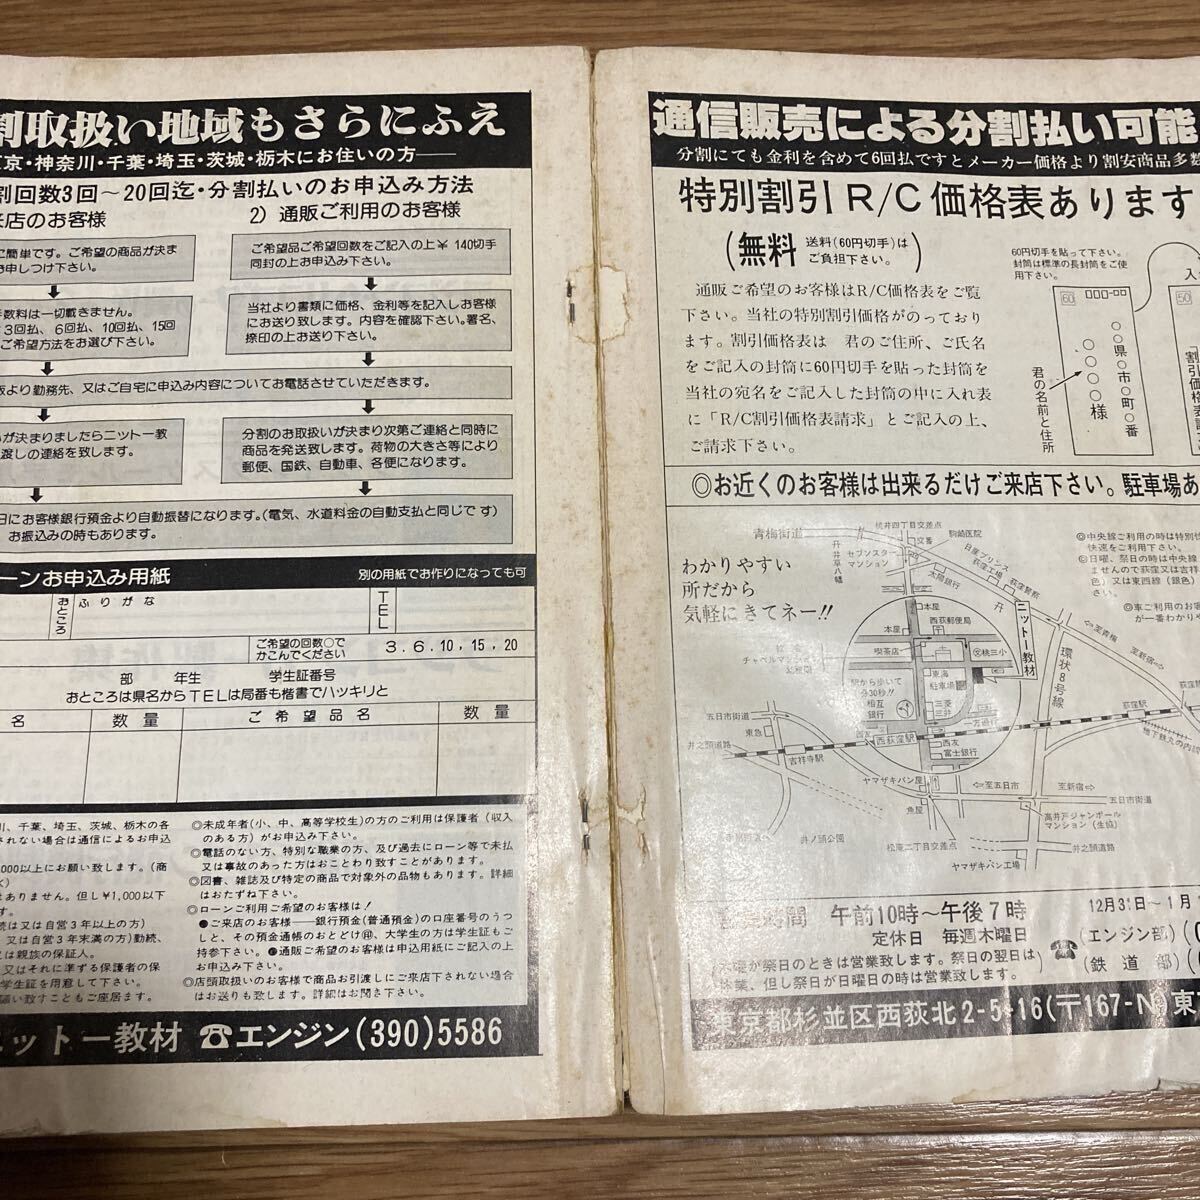 割取扱い地域もさらにふえ
京・神奈川・千葉・埼玉・茨城・栃木にお住いの方──
割回数3回～20回迄・分割払いのお申込み方法
来店のお客様
2) 通販ご利用のお客様
簡単です。ご希望の商品が決ま
お申しつけ下さい。
ご希望品ご希望回数をご記入の上￥140切手
同封の上お申込み下さい。
手数料は一切戴きません。
3回払、6回払、10回払、15回
ご希望方法をお選び下さい。
当社より書類に価格、金利等を記入しお客様
にお送り致します。内容を確認下さい。署名、
捺印の上お送り下さい。
より勤務先、又はご自宅に申込み内容についてお電話させていただきます。
いが決まりましたらニットー教
渡しの連絡を致します。
分割のお取扱いが決まり次第ご連絡と同時に
商品を発送致します。荷物の大きさ等により
郵便、国鉄、自動車、各便になります。
日にお客様銀行預金より自動振替になります。(電気、水道料金の自動支払と同じです)
お振込みの時もあります。
ーンお申込み用紙
別の用紙でお作りになっても可
おところ
ふりがな
TEL
ご希望の回数○で
かこんでください
3.6.10,15,20
部 年生 学生証番号
おところは県名からTELは局番も楷書でハッキリと
名
数量
ご希望品名
数量
川、千葉、埼玉、茨城、栃木の各
されない場合は通信によるお申込
000以上にお願い致します。(商
はありません。但し￥1,000以下
す。
続は又は自営3年以上の方)
又は自営3年末満の方)勤続、
又は親族の保証人。
又はそれに準ずる保護者の保
学生証を用意して下さい。
願い致すこともご座居ます。
◎未成年者(小、中、高等学校生)の方のご利用は保護者(収入
のある方)がお申込み下さい。
◎電話のない方、特別な職業の方、及び過去にローン等で未払
又は事故のあった方はおことわり致すことがあります。
◎図書、雑誌及び特定の商品で対象外の品物もあります。詳細
はおたずね下さい。
◎ローンご利用ご希望のお客様は!
●ご来店のお客様──銀行預金(普通預金)の口座番号のうつ
しと、その預金通帳のおとどけ㊞、大学生の方は学生証もご
持参下さい。●通販ご希望のお客様は申込用紙にご記入の上
お申込み下さい。
◎店頭取扱いのお客様で商品お引渡しにご来店下されない場合
はお送りも致します。詳細はお聞き下さい。
ニットー教材 ☎エンジン(390)5586
通信販売による分割払い可能
分割にても金利を含めて6回払ですとメーカー価格より割安商品多数
特別割引R/C価格表あります
(無料 送料(60円切手)は
ご負担下さい。)
通販ご希望のお客様はR/C価格表をご覧
下さい。当社の特別割引価格がのっており
ます。割引価格表は 君のご住所、ご氏名
をご記入の封筒に60円切手を貼った封筒を
当社の宛名をご記入した封筒の中に入れ表
に「R/C割引価格表請求」とご記入の上、
ご請求下さい。
60円切手を貼って下さい。
封筒は標準の長封筒をご使
用下さい。
60
○○県○市○町○番
○○○○様
君の名前と住所
入
50
◎お近くのお客様は出来るだけご来店下さい。駐車場あ
わかりやすい
所だから
気軽にきてネー!!
青梅街道
桃井四丁目交差点
交番
駒崎医院
セブンスター
マンション
井草八幡
太陽銀行
日産プリンス
荻窪工場
荻窪警察
ニットー教材
本屋
西荻郵便局
本屋
喫茶店
桃三小
チャペルマンション
東海
駐車場
駅から歩いて
分30秒!!
相互
銀行
三菱
三井
一方通行
五日市街道
東急
西友
西荻窪駅
西友
富士銀行
井之頭道路
吉祥寺駅
ヤマザキパン屋
魚屋
井ノ頭公園
松庵二丁目交差点
ヤマザキパン工場
至五日市
至新宿
五日市街道
高井戸ジャンボール
マンション(生協)
井之頭道路
環状8号線
至青梅
至新宿
荻窪駅
荻窪
◎中央線ご利用の時は特別快
快速をご利用下さい。
◎日曜、祭日の時は中央線
ませんので荻窪又は吉祥
色)又は東西線(銀色)
さい。
◎車ご利用のお客
が一番わかりや
間 午前10時～午後7時
12月31日～1月
定休日 毎週木曜日
曜が祭日のときは営業致します。祭日の翌日は
休業、但し祭日が日曜日の時は営業致します。
☎
(エンジン部)
(鉄道部)
東京都杉並区西荻北2-5-16(〒167-N) 東